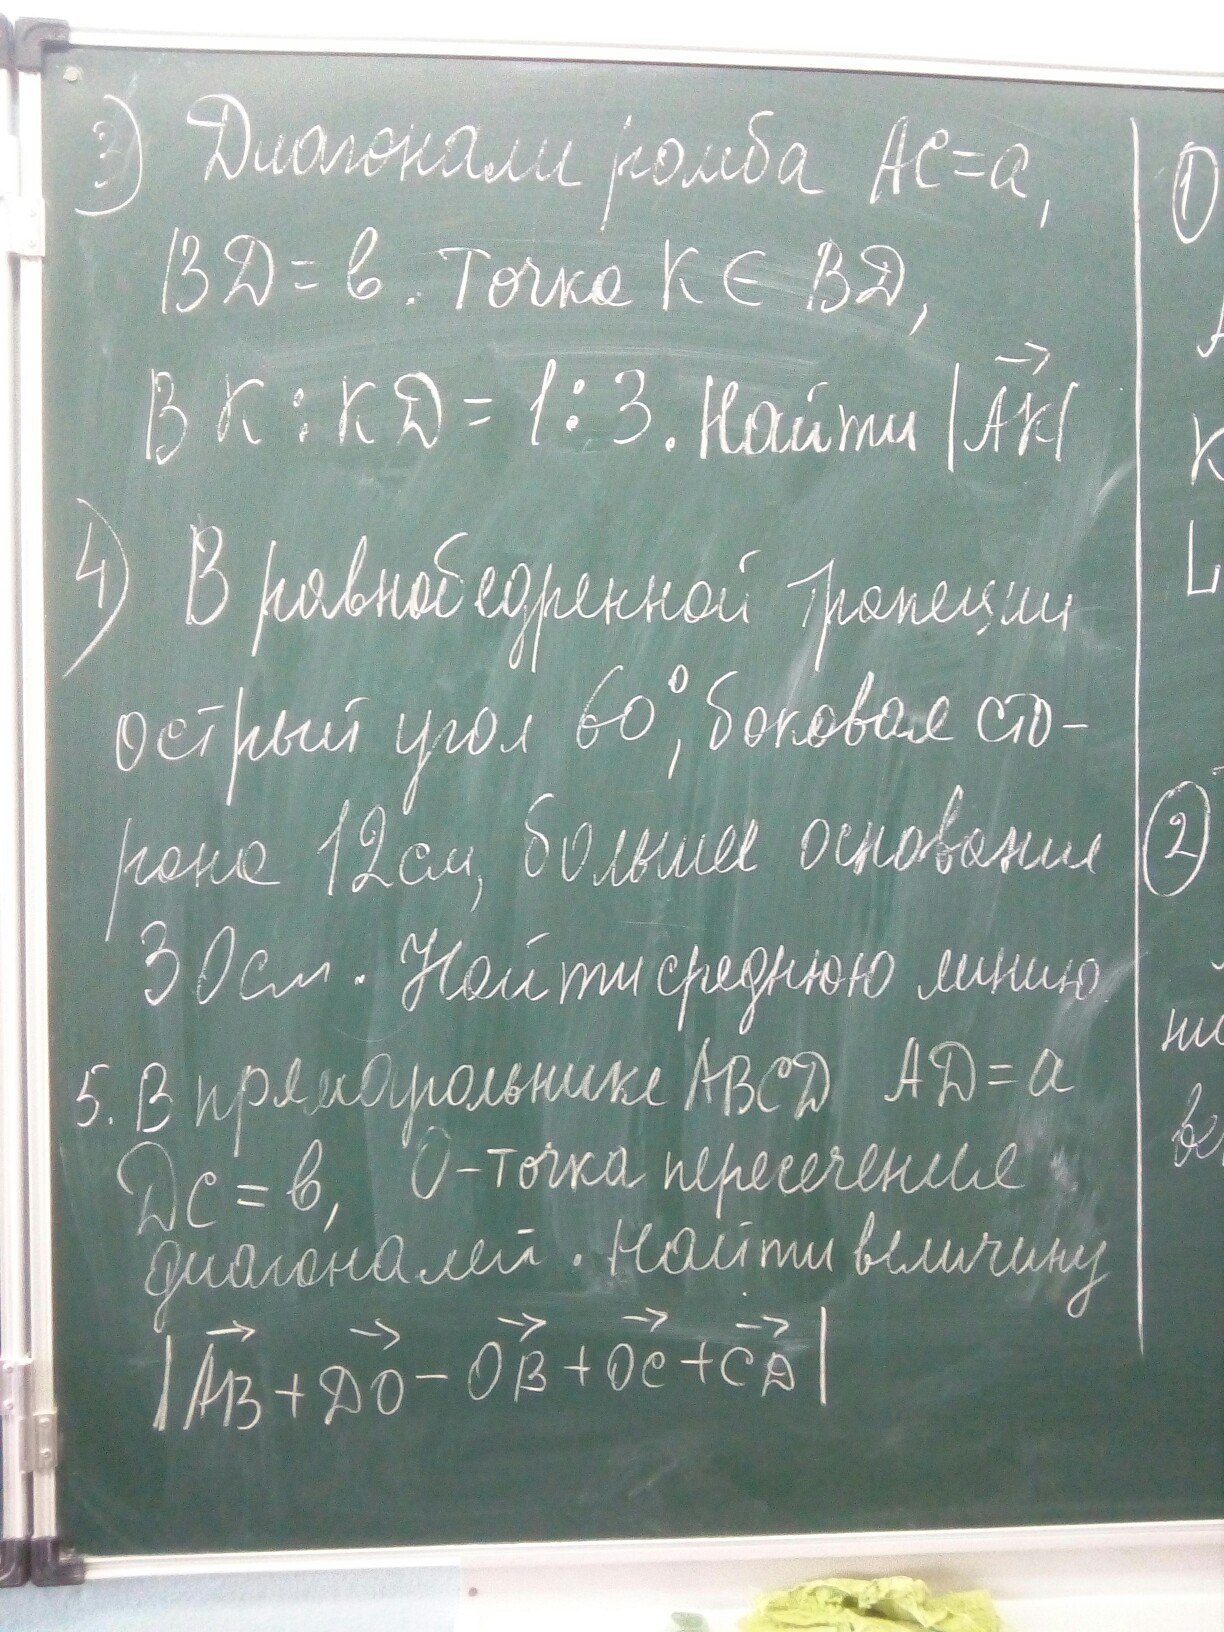 3) Диагонали ромба AC=a,
BD=в. Точка K∈BD,
BK:KD=1:3. Найти |AK|
4) В равнобедренной трапеции
острый угол 60°, боковая сто-
рона 12см, большее основание
30см. Найти среднюю линию
5. В прямоугольнике ABCD AD=a
DC=в, O-точка пересечения
диагоналей. Найти величину
|AB+DO-OB+OC+CD|
1
2